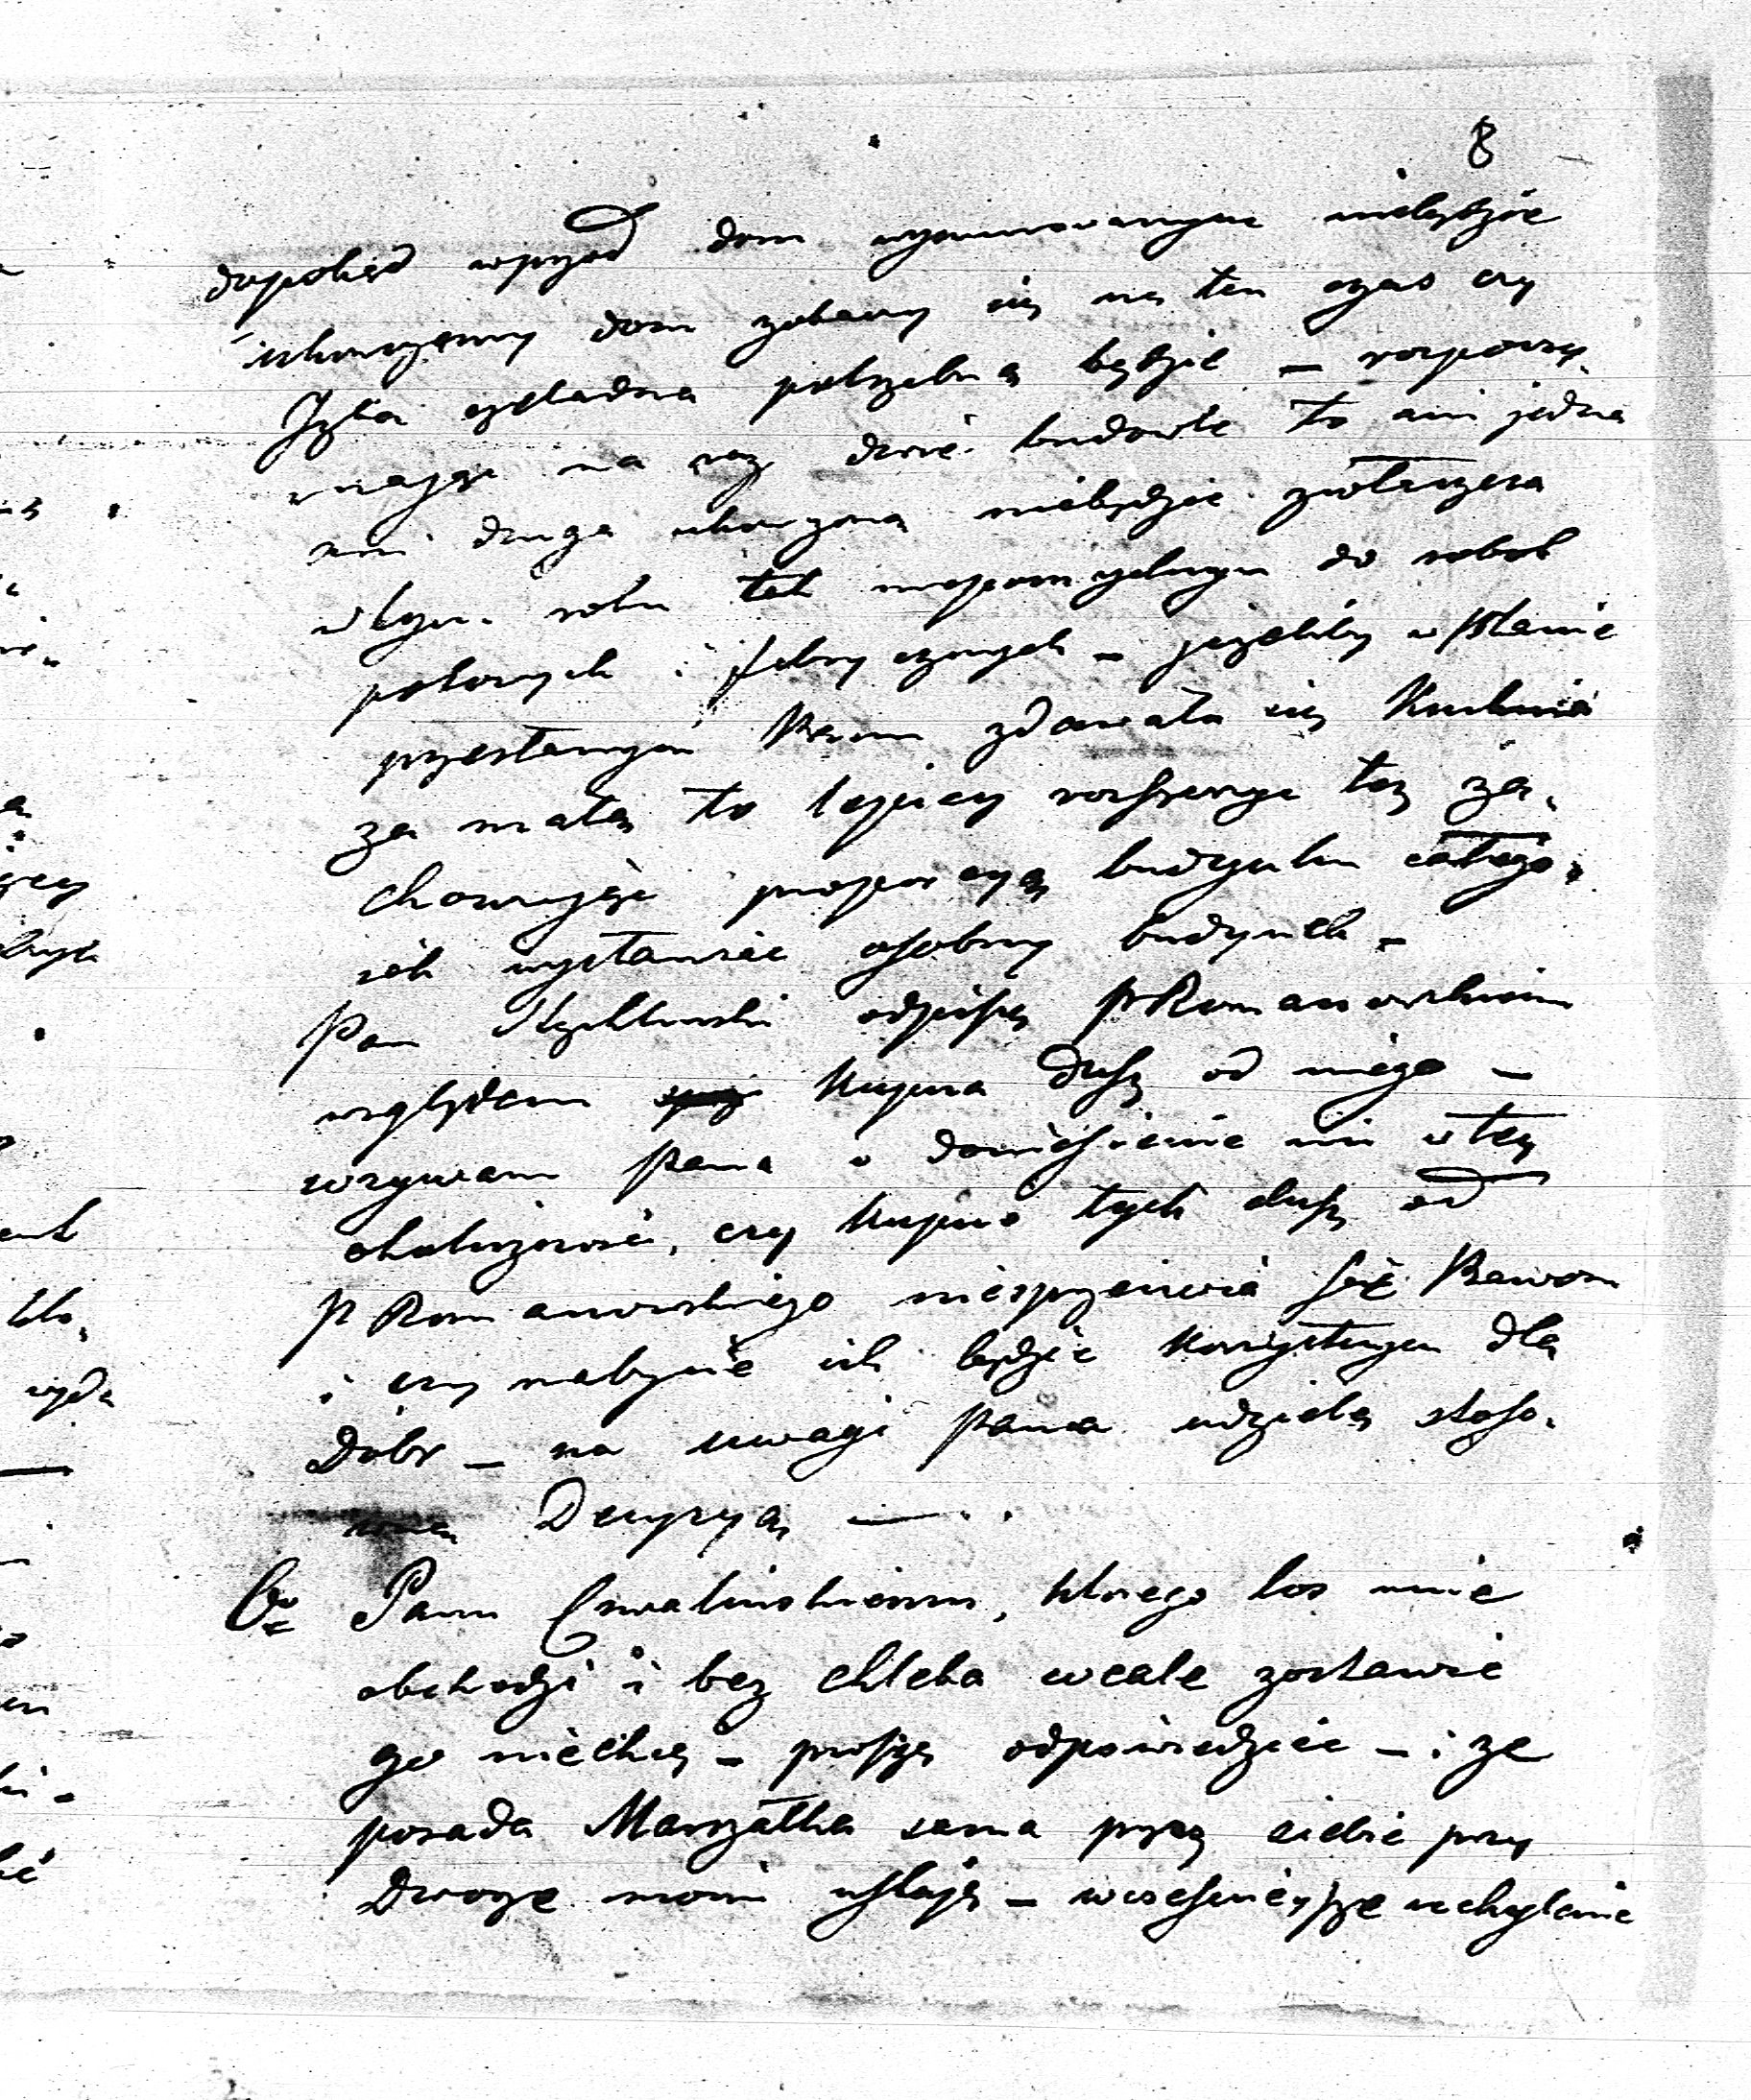 8
dopokąd wprzod dom wymurowanym niebędzie
ukończony dom zobaczy się na ten czas czy
Izba czeladna potrzebną będzie – rozpoczy„
naiąc na raz dwie budowle to ani jedna
ani druga ukończoną niebędzie zwłaszcza
w tym roku tak niepomyślnym do robot
polowych i fabrycznych – jeżeliby w planie
przesłanym Panu zdawała się Kuchnia
za małą to lepiey rozszerzyc tę za„
chowuiąc proporcyą budynku całego„
jak wystawiac osobny budynek –
Pan odpiszę P Romanowskim
względem Kupna dusz od niego –
wzywam Pana o doniesienie mi w tey
okoliczności, czy kupno tych dusz od
P Romanowskiego niesprzeciwia się Prawom
i czy nabycie ich będzie korzystnym dla
Dobr – na uwagi Pana udzielę stoso„
wną Decyzyą —
Panu Cywalinskiemu, ktorego los mnie
obchodzi i bez chleba wcale zostawic
go niechcę – proszę odpowiedziec – i ze
posada Marszałka sama przez siebie przy
Dworze moim ustaję – wcześnieysze uchylenie